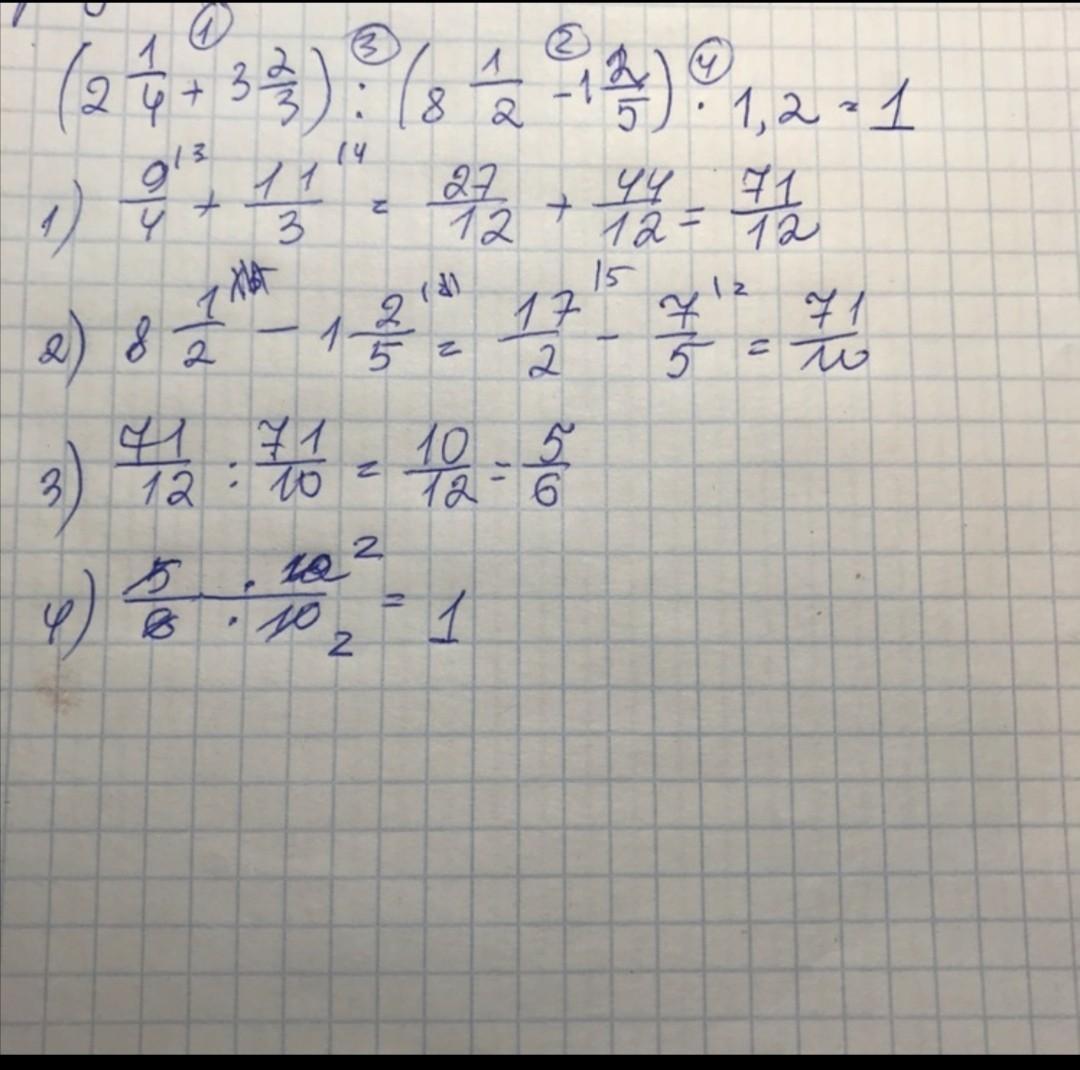 (2 1/4 + 3 2/3) : (8 1/2 - 1 2/5) · 1,2 = 1
① ③ ② ④
1) 9/4 ⁽³ + 11/3 ⁽⁴ = 27/12 + 44/12 = 71/12
2) 8 1/2 - 1 2/5 = 17/2 ⁽⁵ - 7/5 ⁽² = 71/10
3) 71/12 : 71/10 = 10/12 = 5/6
4) 5 · 12 ² / 6 · 10 ₂ = 1